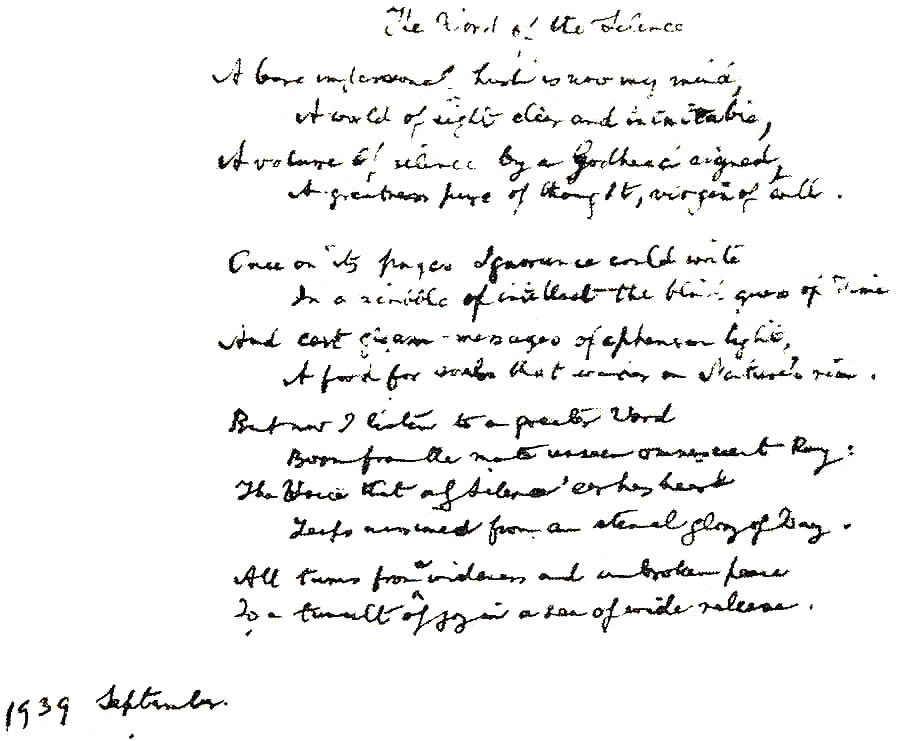 The Word of the Silence
A bare impersonal hush is now my mind,
A world of sight clear and inimitable,
A volume of silence by a Godhead signed,
A greatness pure of thought, virgin of will.
Once on its pages Ignorance could write
In a scribble of intellect the blind guess of Time
And cast gleam-messages of ephemeral light,
A food for souls that wander on Nature's rim.
But now I listen to a greater Word
Born from the mute unseen omniscient Ray:
The Voice that only Silence' ear has heard
Leaps missioned from an eternal glory of Day.
All turns from a wideness and unbroken peace
To a tumult of joy in a sea of wide release.
1939 September.